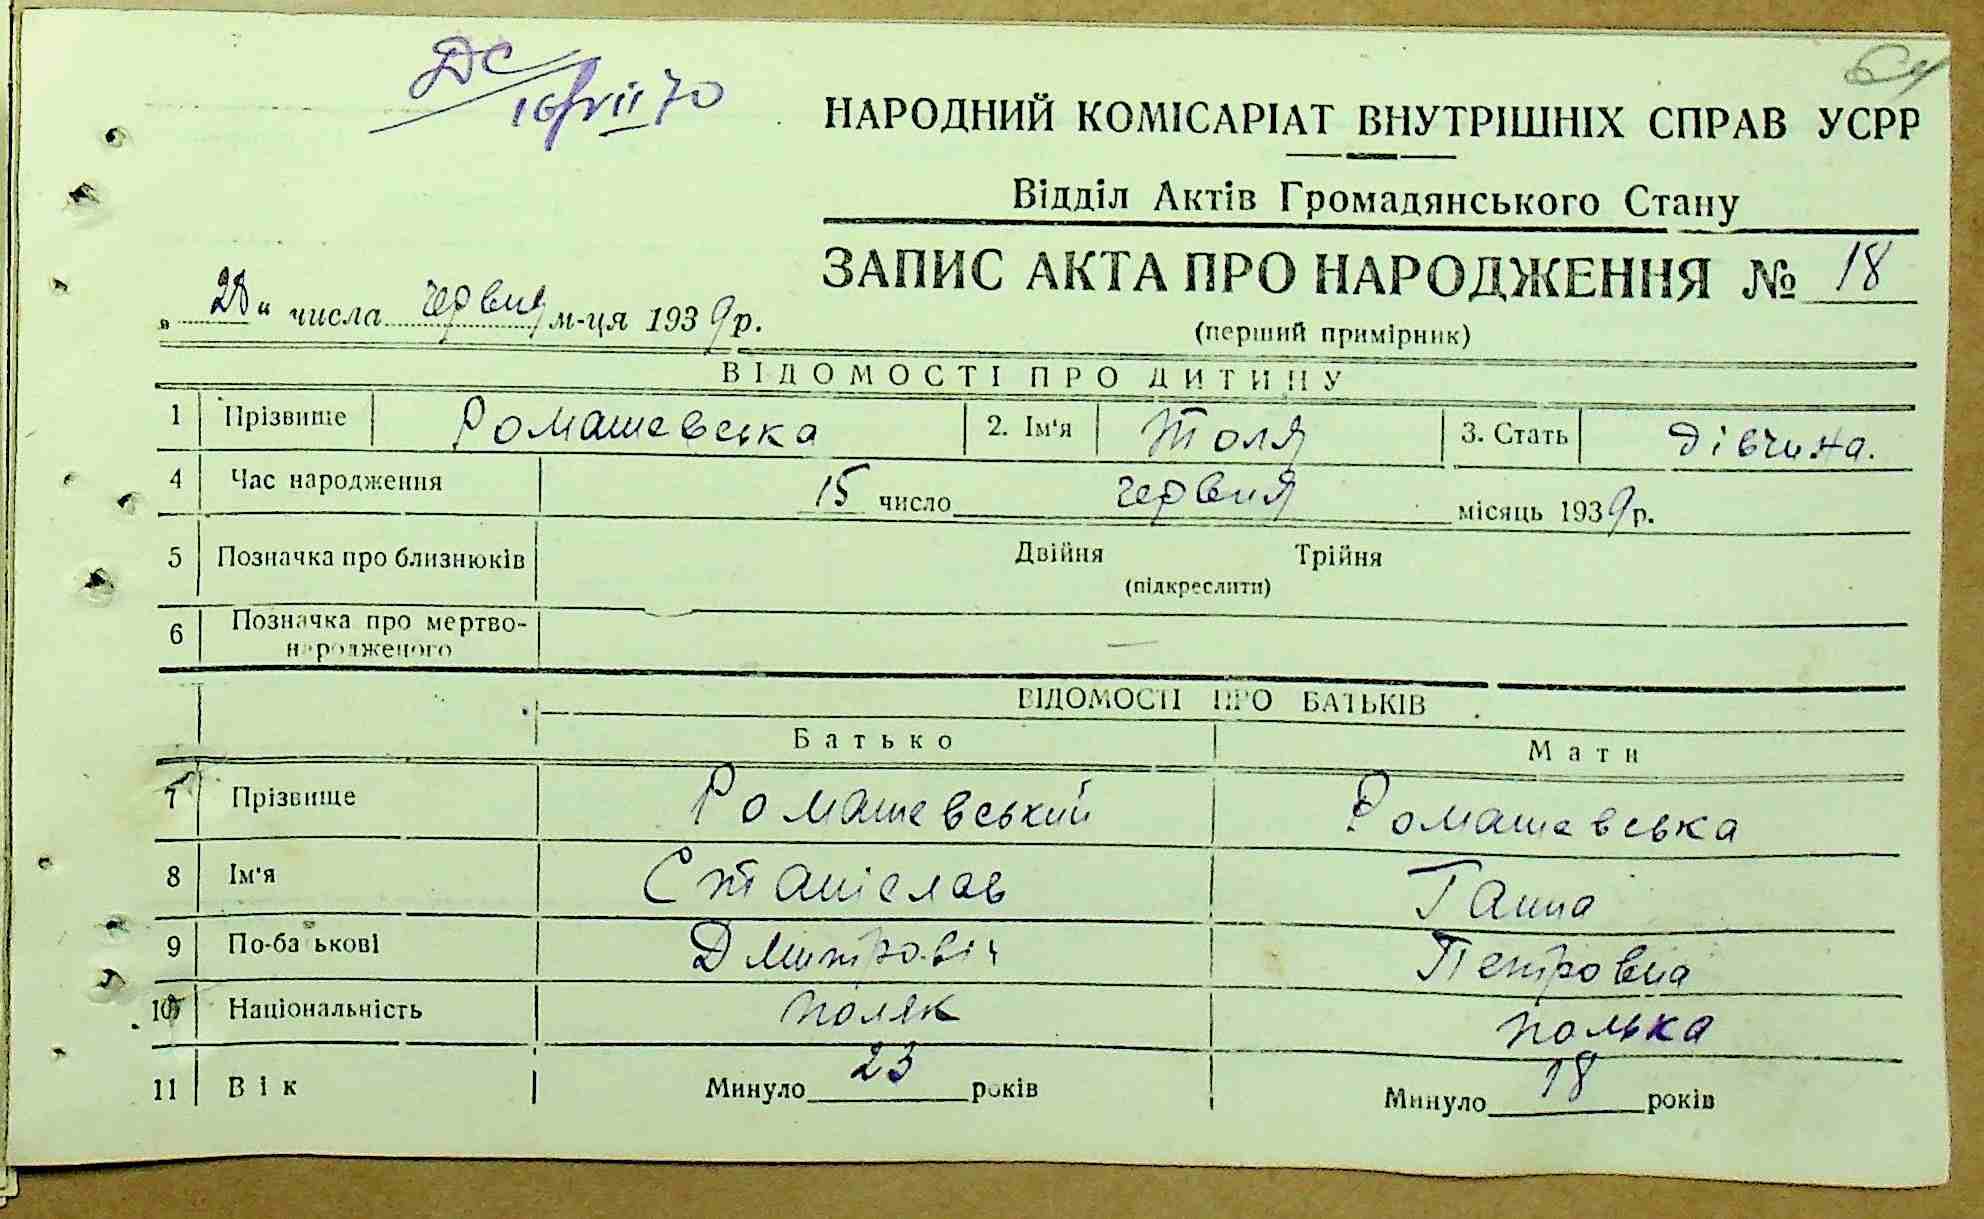 ДС
16/VII 70
64
НАРОДНИЙ КОМІСАРІАТ ВНУТРІШНІХ СПРАВ УСРР
Відділ Актів Громадянського Стану
ЗАПИС АКТА ПРО НАРОДЖЕННЯ № 18
„28“ числа червня м-ця 1939 р.
(перший примірник)
ВІДОМОСТІ ПРО ДИТИНУ
1 Прізвище Ромашевська 2. Ім'я Толя 3. Стать дівчина.
4 Час народження 15 число червня місяць 1939 р.
5 Позначка про близнюків Двійня Трійня
(підкреслити)
6 Позначка про мертво-
народженого —
ВІДОМОСТІ ПРО БАТЬКІВ
Батько Мати
7 Прізвище Ромашевський Ромашевська
8 Ім'я Станіслав Ганна
9 По-батькові Дмитровіч Петровна
10 Національність поляк полька
11 Вік Минуло 23 років Минуло 18 років